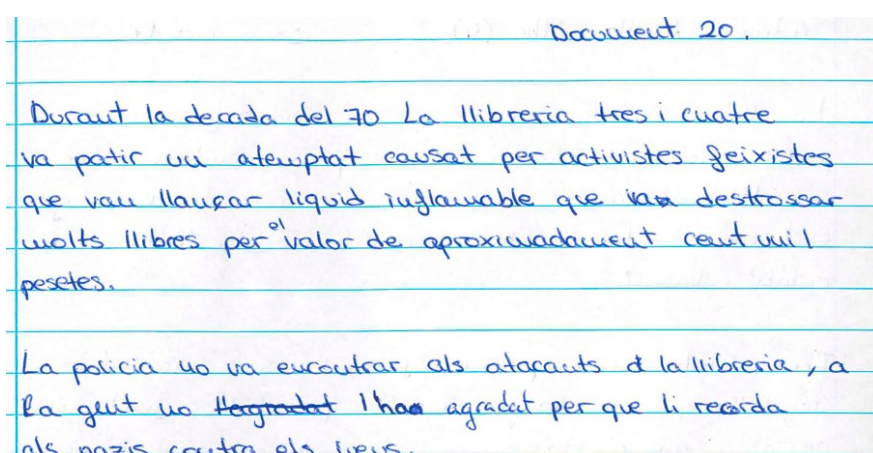 Document 20.
Durant la decada del 70 La llibreria tres i cuatre
va patir un atemptat causat per activistes feixistes
que van llançar liquid inflamable que van destrossar
molts llibres per el valor de aproximadament cent mil
pesetes.
La policia no va encontrar als atacants d la llibreria, a
la gent no l ha agradat per que li recorda
als nazis contra els